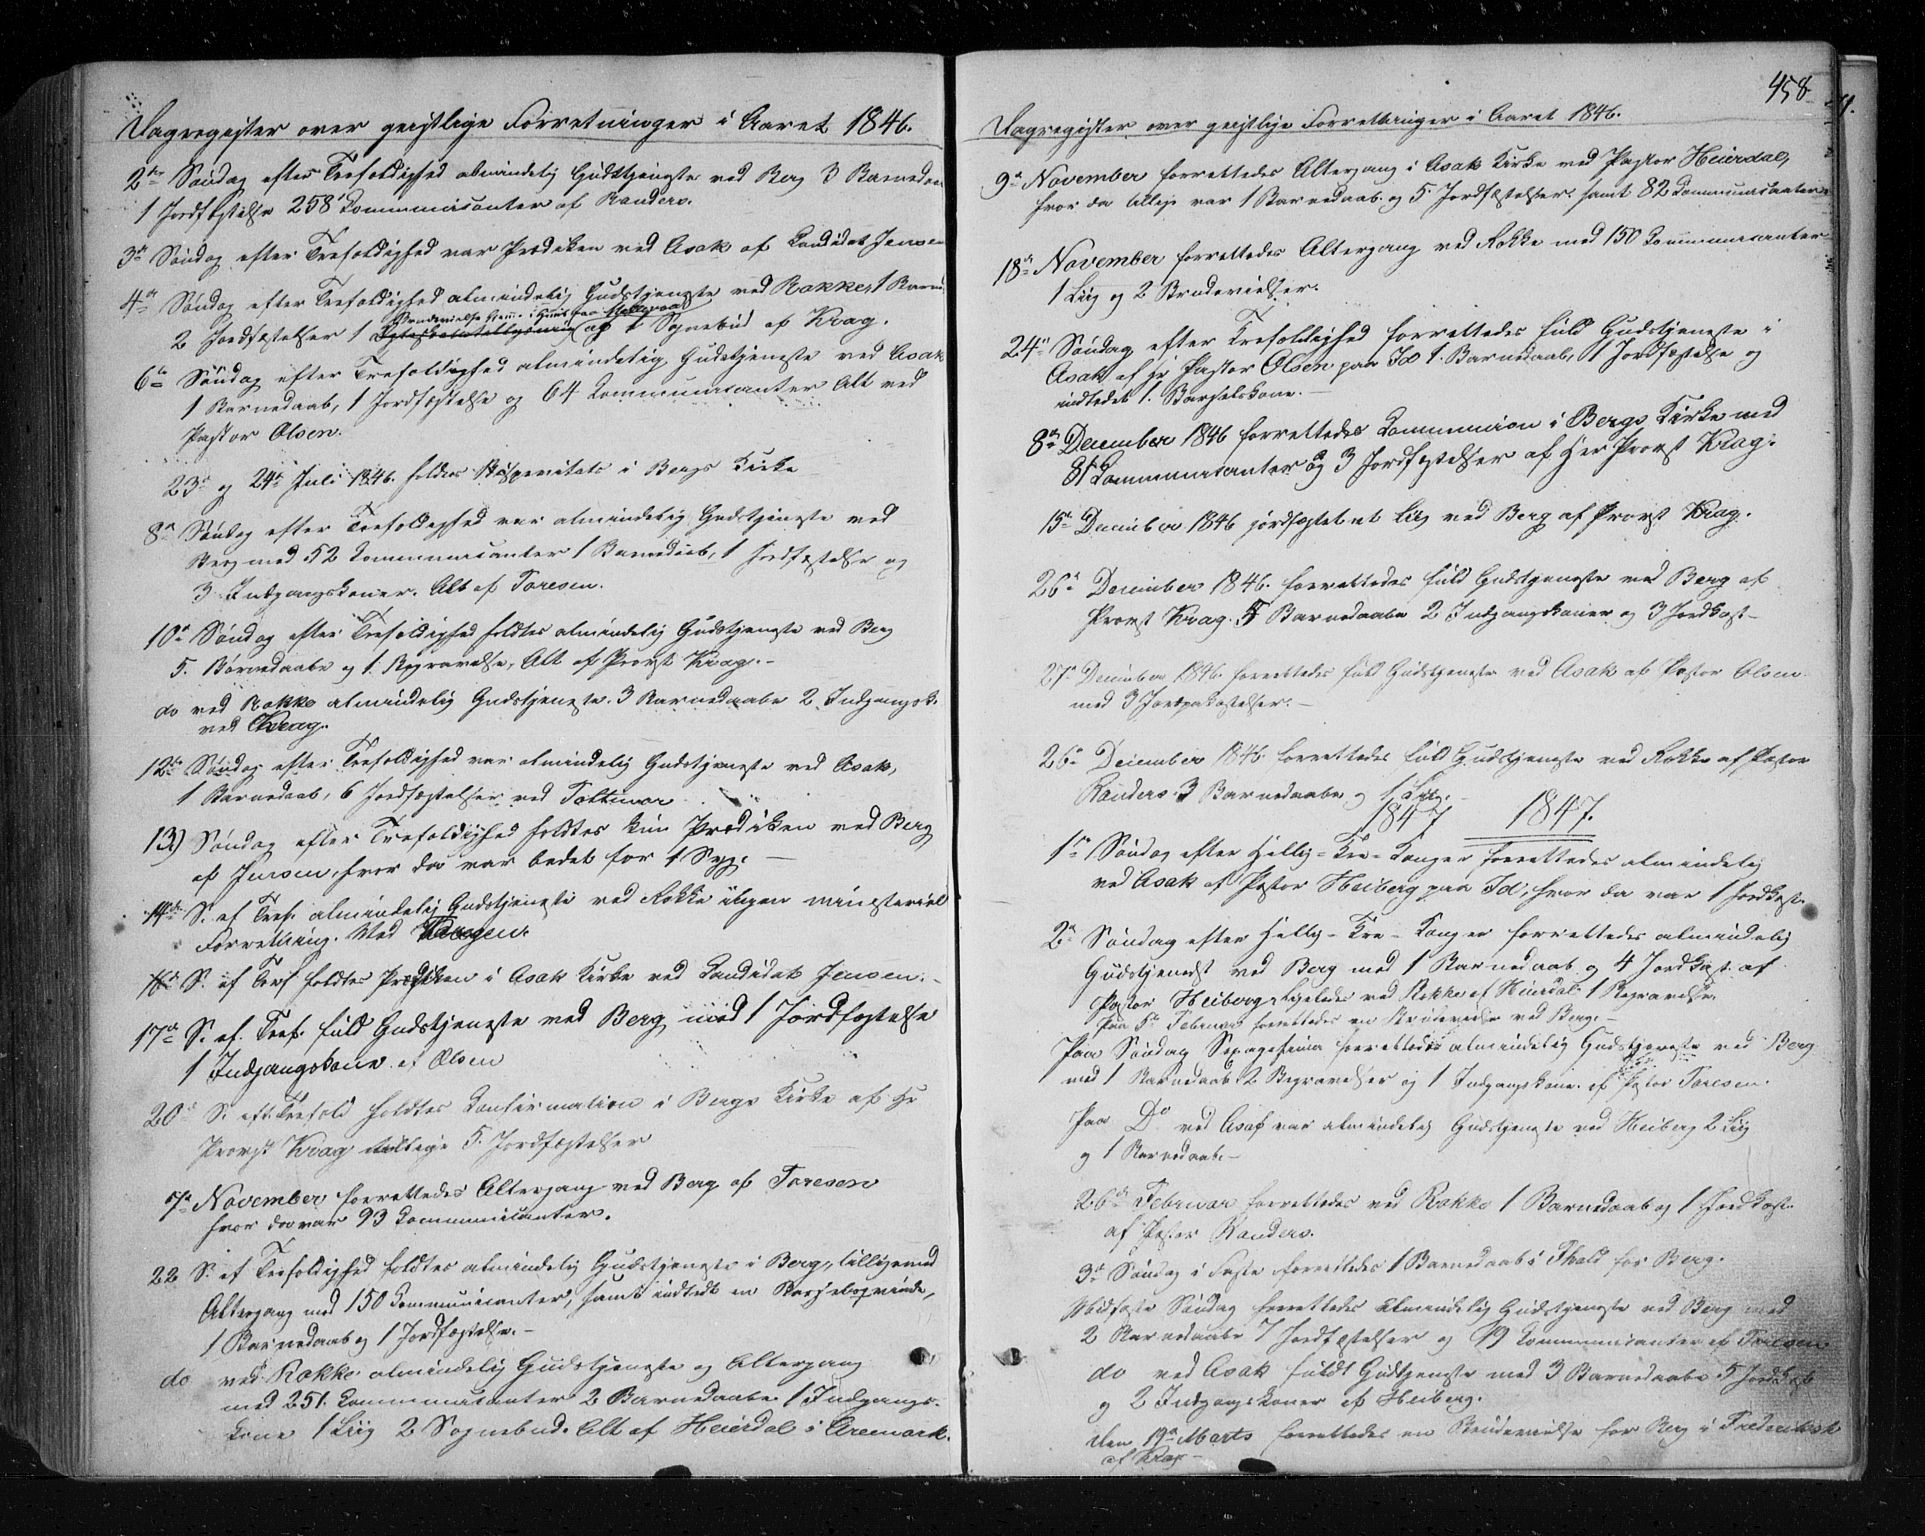 Dagregister over geistlige Forretninger i Aaret 1846.
2den Søndag efter Trefoldighed almindelig Gudstjeneste ved Berg 3 Barnedaa
1 Jordfæstelse 258 Kommunicanter af Randers.
3die Søndag efter Trefoldighed var Prædiken ved Asak af Candidat Jensen
4de Søndag efter Trefoldighed almindelig Gudstjeneste ved Rokke, 1 Barne
2 Jordfæstelser 1 og 1 Sognebud af Krag.
6te Søndag efter Trefoldighed almindelig Gudstjeneste ved Asak
1 Barnedaab, 1 Jordfæstelse og 64 Kommunicanter Alt ved
Pastor Olsen.
23de og 24de Juli 1846. holdes Bispevisitats i Bergs Kirke
8de Søndag efter Trefoldighed var almindelig Gudstjeneste ved
Berg med 52 Kommunicanter 1 Barnedaab, 1 Jordfæstelse og
3 Indgangskoner. Alt af Toresen.
10de Søndag efter Trefoldighed holdtes almindelig Gudstjeneste ved Berg
5. Barnedaabe og 1. Begravelse, Alt af Provst Krag.-
do ved Rokke almindelig Gudstjeneste. 3 Barnedaabe 2 Indgangsk.
ved Krag.
12te Søndag efter Trefoldighed var almindelig Gudstjeneste ved Asak,
1 Barnedaab, 6 Jordfæstelser ved
13) Søndag efter Trefoldighed holdtes kun Prædiken ved Berg
af Jensen, hvor da var bedet for 1 Syg. —
14de S. ef Tref. almindelig Gudstjeneste ved Rokke ingen ministeriel
Forretning. Ved
16de S. ef Tref holdtes Prædiken i Asak Kirke ved Candidat Jensen.-
17de S. ef. Tref. fuld Gudstjeneste ved Berg med 1 Jordfæstelse
1 Indgangskone af Olsen
20de S. eft. Trefold holdtes Confirmation i Bergs Kirke af Hr
Provst Krag tillige 5. Jordfæstelser
7de November forrettedes Altergang ved Berg af Toresen
hvor da var 93 Kommunicanter.
22 S. ef Trefoldighed holdtes almindelig Gudstjeneste i Berg, tilligemed
Altergang med 150 Kommunicanter, samt indledt en Barselqvinde,
1 Barnedaab og 1 Jordfæstelse.-
do ved Rokke almindelig Gudstjeneste og Altergang
med 251. Kommunicanter 2 Barnedaabe 1 Indgangs-
kone 1 Liig 2 Sognebud. Alt af Heierdal i Aremark.
458
Dagregister over geistlige Forrettninger i Aaret 1846.
9de November forrettedes Altergang i Asak Kirke ved Pastor Heierdal,
hvor da tillige var 1 Barnedaab og 5 Jordfæstelser. samt 82 Kommunicanter
18de November forrettedes Altergang ved Rokke med 150 Kommunicanter
1 Liig og 2 Brudevielser.
24de Søndag efter Trefoldighed forrettedes fuld Gudstjeneste i
Asak af Hr Pastor Olsen paa Id 1. Barnedaab, 1 Jordfæstelse og
indledet 1. Barselskone.-
8de December 1846 forrettedes Communion i Bergs Kirke med
81 Kommunicanter og 3 Jordfæstelser af Her Provst Krag.
15de December 1846 jordfæstet et Liig ved Berg af Provst Krag.
26de December 1846. forrettedes fuld Gudstjeneste ved Berg af
Provst Krag. 5 Barnedaabe 2 Indgangskoner og 3 Jordkast-
27de December 1846. forrettedes fuld Gudstjeneste ved Asak af Pastor Olsen
med 3 Jordpakastelser.-
26de December 1846 forrettedes fuld Gudstjeneste ved Rokke af Pastor
Randers. 3 Barnedaabe og 1 Liig.
1847 1847.
1ste Søndag efter Hellig-Tre-Konger forrettedes almindelig
ved Asak af Pastor Heiberg paa Id, hvor da var 1 Jordkast.
2den Søndag efter Hellig-Tre-Konger forrettedes almindelig
Gudstjenest ved Berg med 1 Barnedaab og 4 Jordkast. af
Pastor Heiberg. ligeledes ved Rokke af Heierdal 1 Begravelse.
Paa 5te Februar forrettedes en Brudevielse ved Berg.-
Paa Søndag Sexagesima forrettedes almindelig Gudstjeneste ved Berg
med 1 Barnedaab 2 Begravelser og 1 Indgangskone. af Pastor Toresen.
Paa Do ved Asak var almindelig Gudstjeneste ved Heiberg 2 Liig
og 1 Barnedaab.-
26de Februar forrettedes ved Rokke 1 Barnedaab og 1 Jordkast.
af Pastor Randers.
3die Søndag i Faste forrettedes 1 Barnedaab i Thald for Berg.
Midfaste Søndag forrettedes almindelig Gudstjeneste ved Berg med
2 Barnedaabe 7 Jordfæstelser og 19 Kommunicanter af Toresen
do ved Asak fuldt Gudtjeneste med 3 Barnedaabe 5 Jordkast
og 2 Indgangskoner af Heiberg.
Den 19de Marts forrettedes en Brudevielse for Berg i Frederiksh
af Krag-